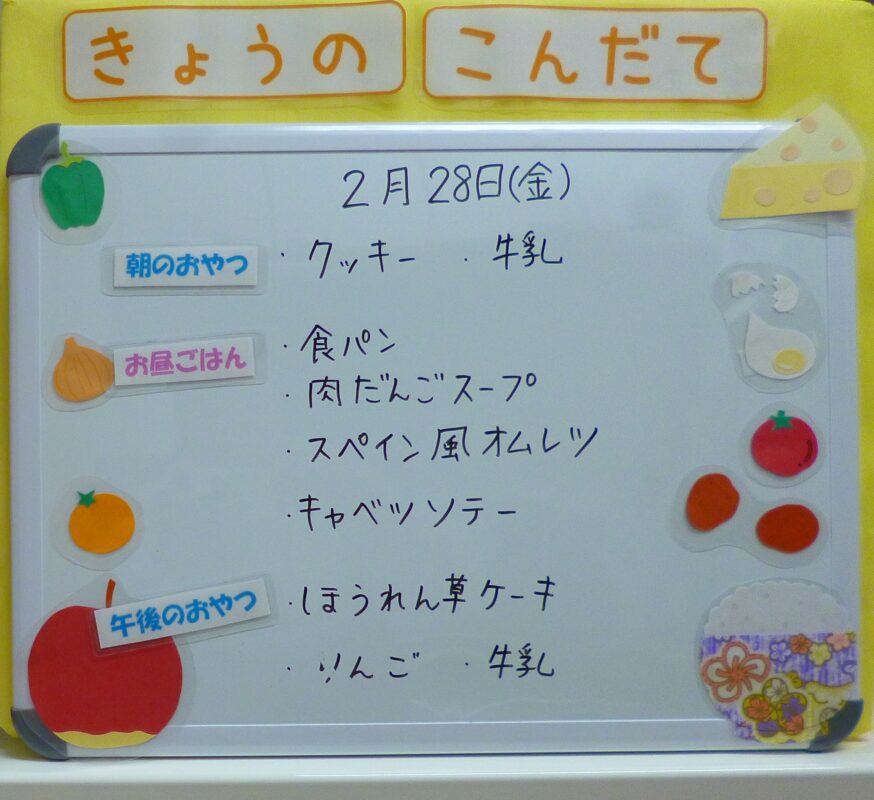 きょうの こんだて
2月28日(金)
朝のおやつ ・クッキー ・牛乳
お昼ごはん ・食パン
・肉だんごスープ
・スペイン風オムレツ
・キャベツソテー
午後のおやつ ・ほうれん草ケーキ
・りんご ・牛乳